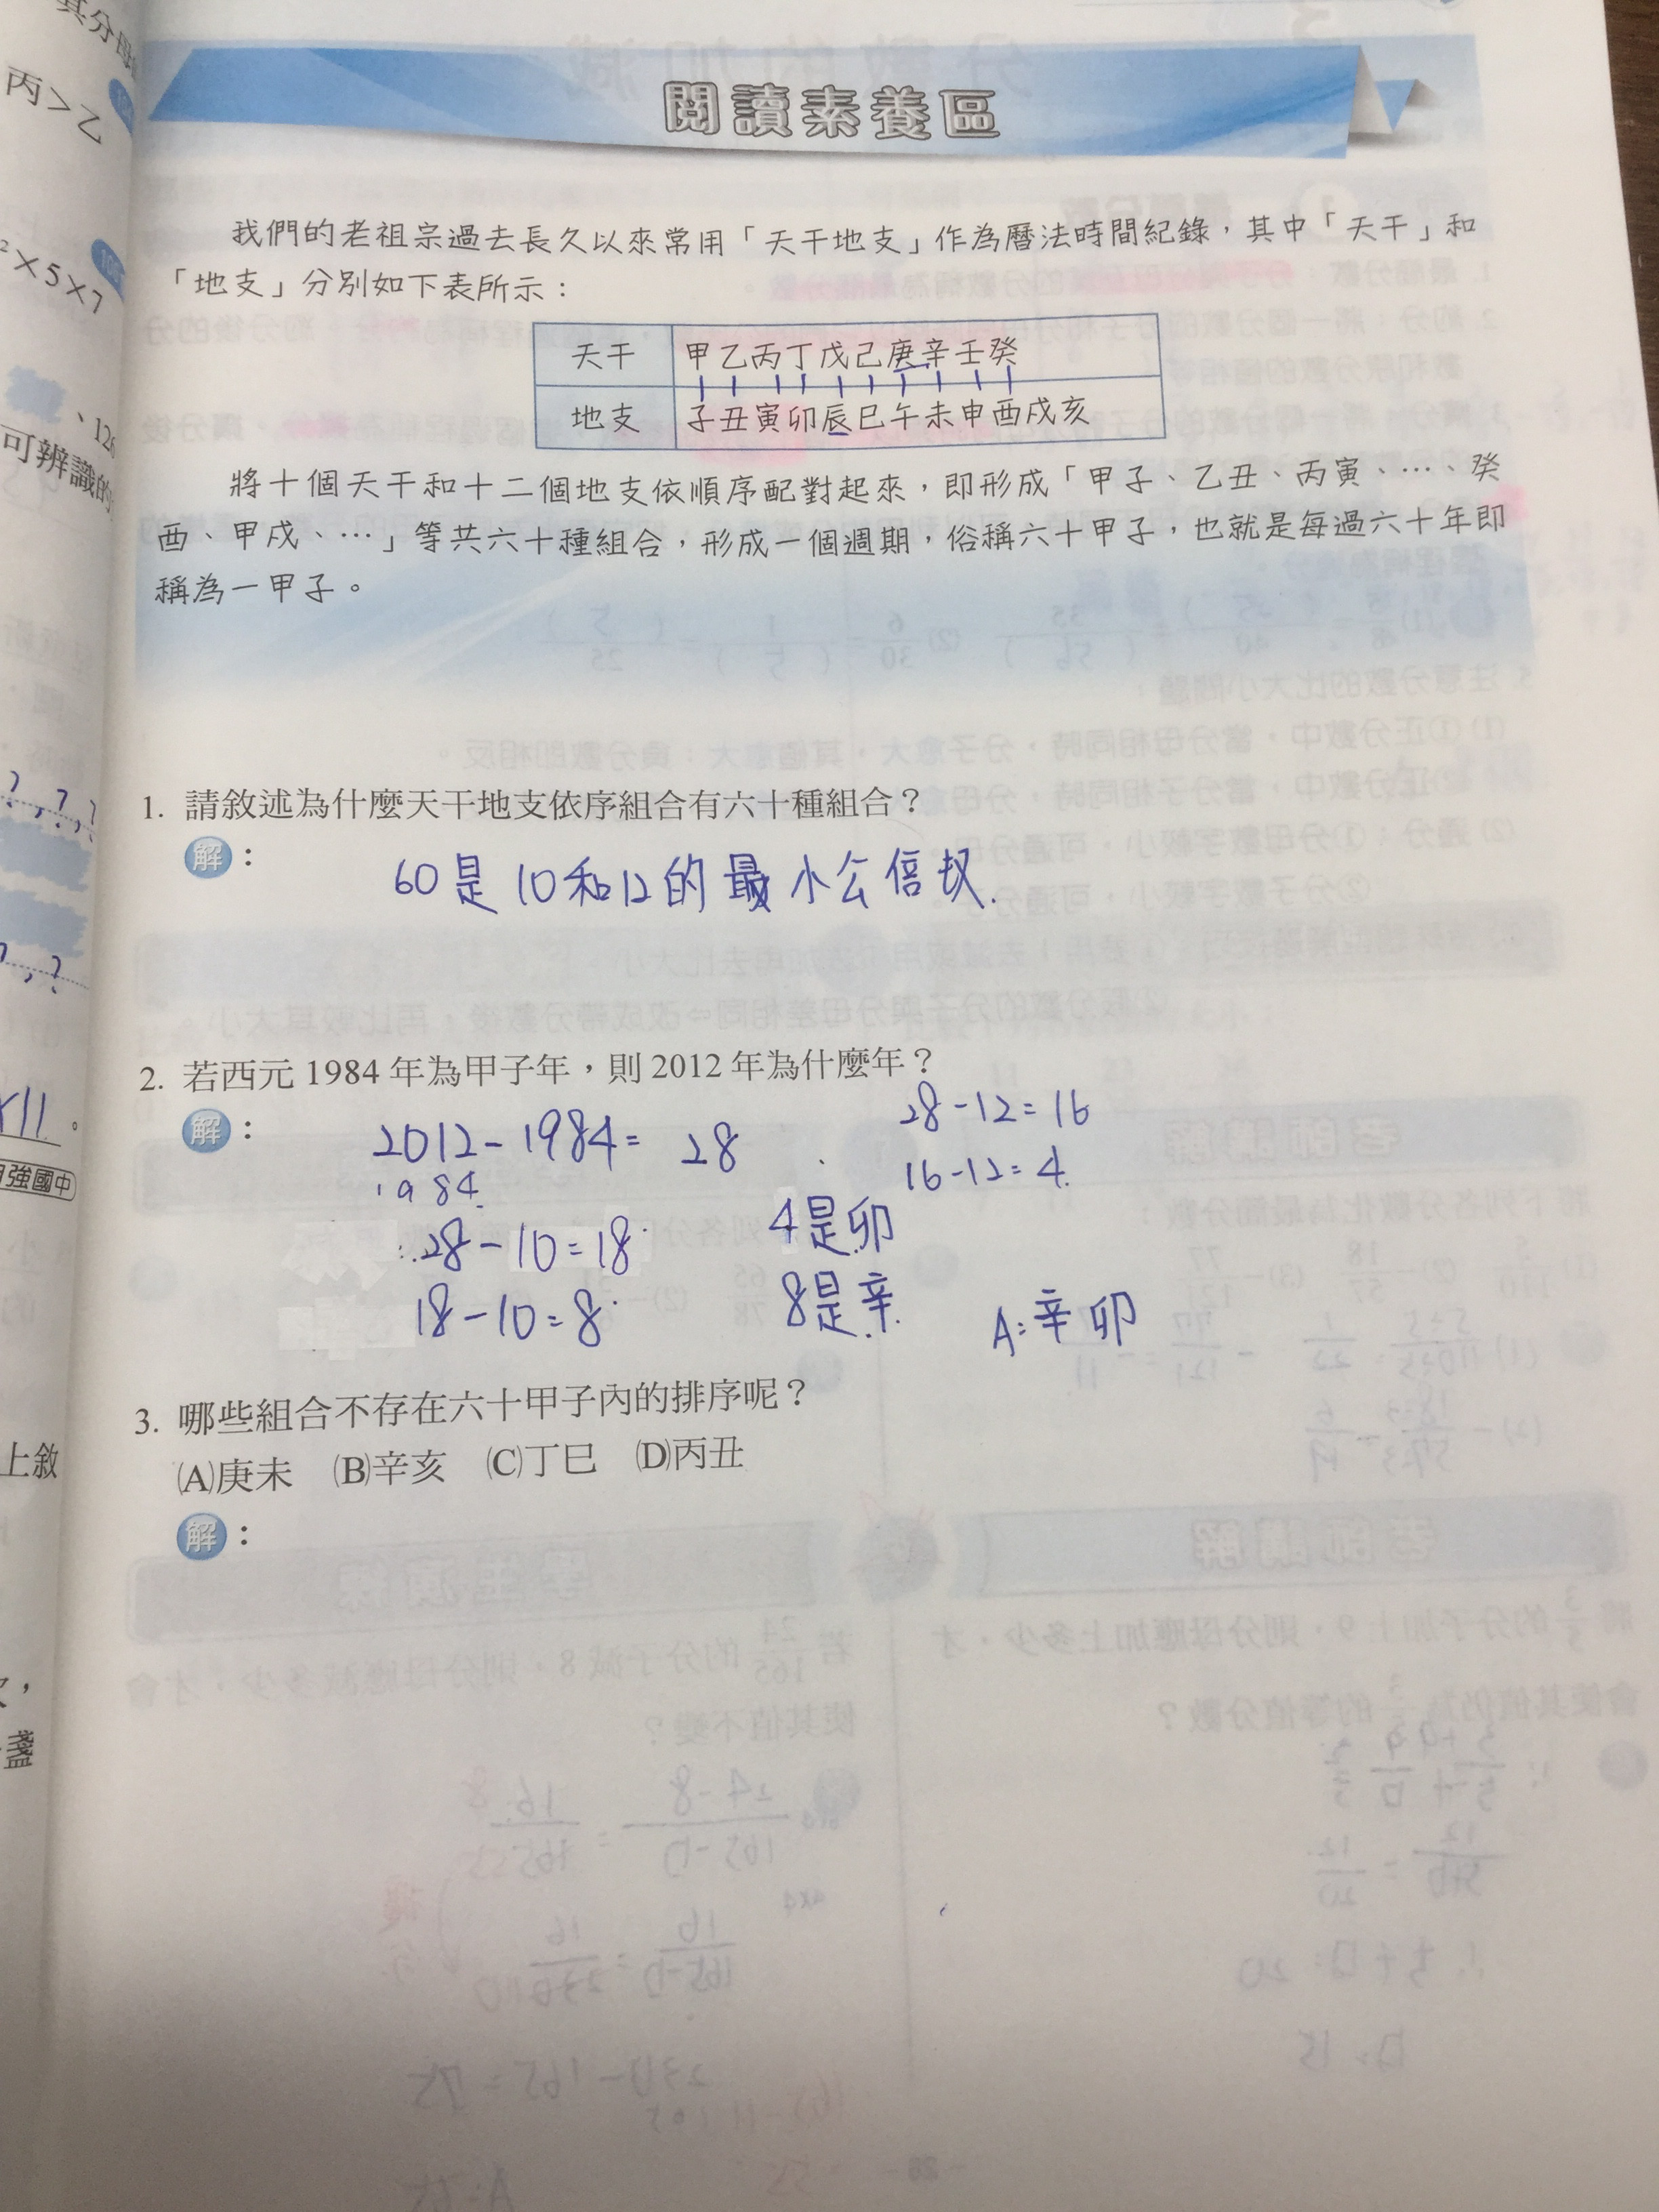 其分母
丙＞乙
²×5×7
、126
可辨識的
?,?,?
?,?
×11。
自強國中
上敘
盞
閱讀素養區
我們的老祖宗過去長久以來常用「天干地支」作為曆法時間紀錄，其中「天干」和
「地支」分別如下表所示：
天干 甲乙丙丁戊己庚辛壬癸
地支 子丑寅卯辰巳午未申酉戌亥
將十個天干和十二個地支依順序配對起來，即形成「甲子、乙丑、丙寅、…、癸
酉、甲戌、…」等共六十種組合，形成一個週期，俗稱六十甲子，也就是每過六十年即
稱為一甲子。
1. 請敘述為什麼天干地支依序組合有六十種組合？
解：
60是10和12的最小公倍数.
2. 若西元 1984 年為甲子年，則 2012 年為什麼年？
解：
2012-1984= 28
1984
28-10=18
18-10=8
28-12=16
16-12=4
4是卯
8是辛
A:辛卯
3. 哪些組合不存在六十甲子內的排序呢？
(A)庚未 (B)辛亥 (C)丁巳 (D)丙丑
解：